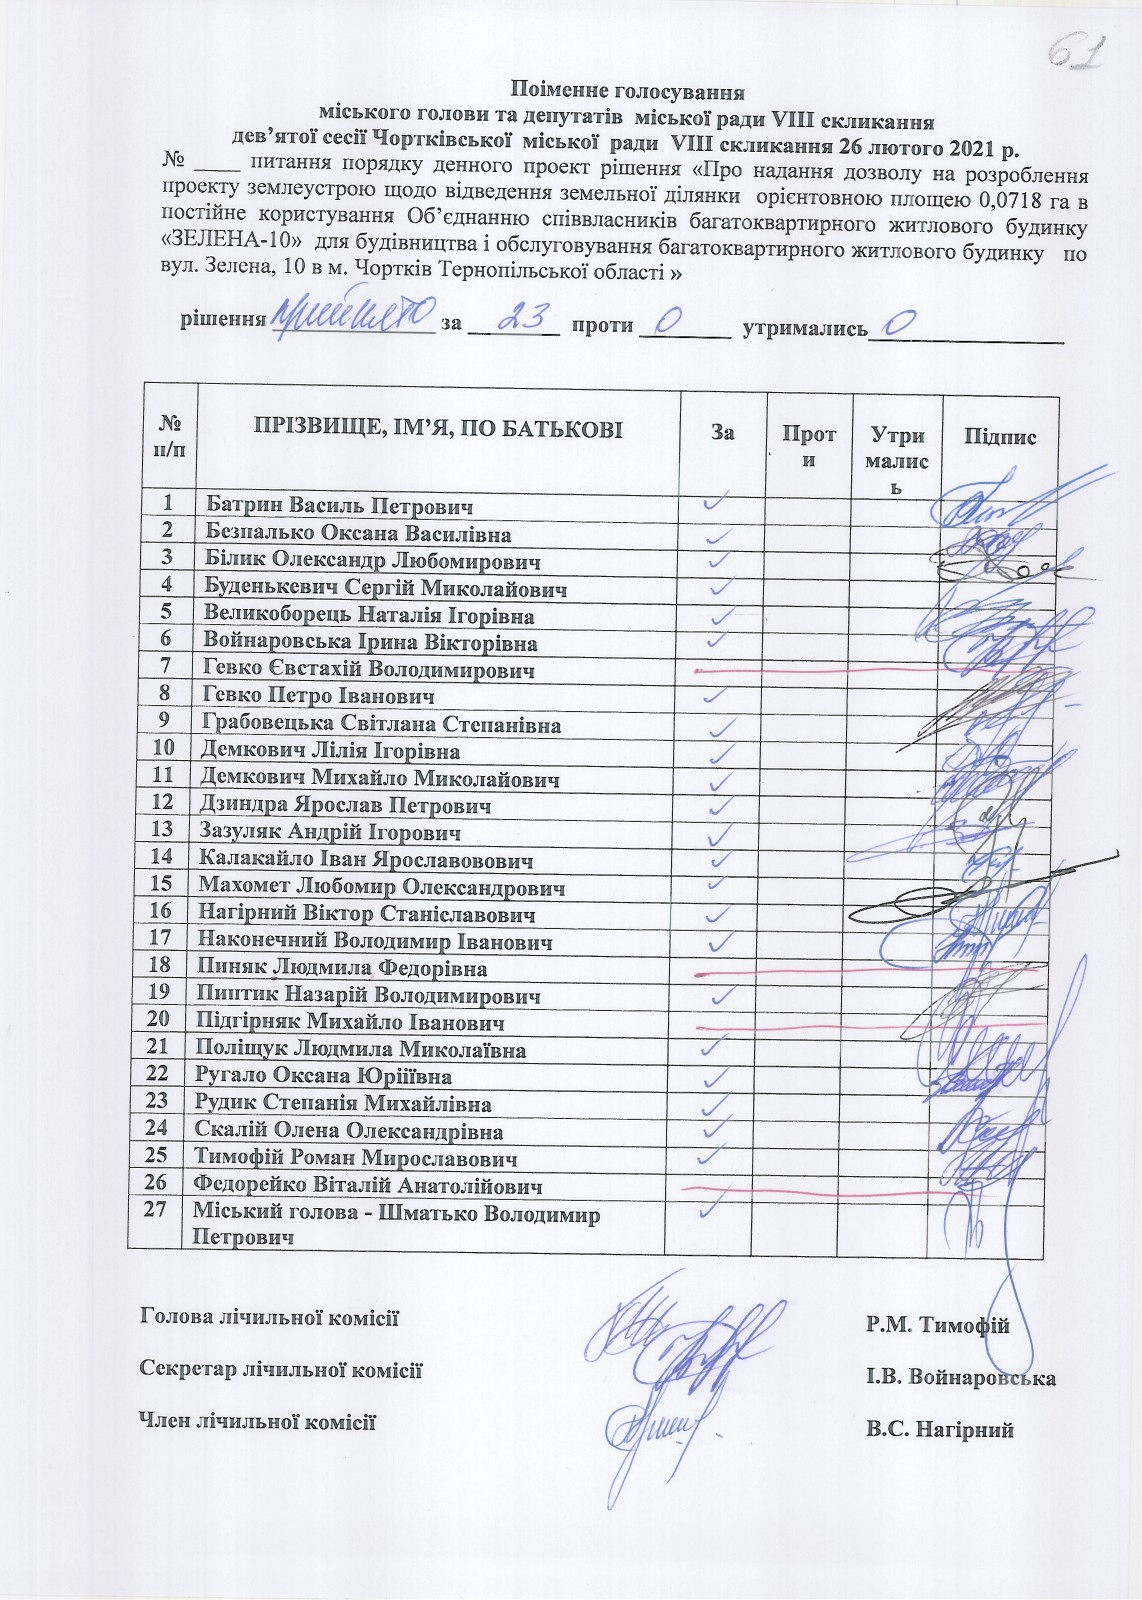 61
Поіменне голосування
міського голови та депутатів міської ради VІІІ скликання
дев’ятої сесії Чортківської міської ради VІІІ скликання 26 лютого 2021 р.
№ ____ питання порядку денного проект рішення «Про надання дозволу на розроблення
проекту землеустрою щодо відведення земельної ділянки орієнтовною площею 0,0718 га в
постійне користування Об’єднанню співвласників багатоквартирного житлового будинку
«ЗЕЛЕНА-10» для будівництва і обслуговування багатоквартирного житлового будинку по
вул. Зелена, 10 в м. Чортків Тернопільської області »
рішення прийнято за 23 проти 0 утримались 0
№ п/п ПРІЗВИЩЕ, ІМ’Я, ПО БАТЬКОВІ За Проти Утрималисܼь Підпис
1 Батрин Василь Петрович ✓
2 Безпалько Оксана Василівна ✓
3 Білик Олександр Любомирович ✓
4 Буденькевич Сергій Миколайович ✓
5 Великоборець Наталія Ігорівна ✓
6 Войнаровська Ірина Вікторівна ✓
7 Гевко Євстахій Володимирович
8 Гевко Петро Іванович ✓
9 Грабовецька Світлана Степанівна ✓
10 Демкович Лілія Ігорівна ✓
11 Демкович Михайло Миколайович ✓
12 Дзиндра Ярослав Петрович ✓
13 Зазуляк Андрій Ігорович ✓
14 Калакайло Іван Ярославовович ✓
15 Махомет Любомир Олександрович ✓
16 Нагірний Віктор Станіславович ✓
17 Наконечний Володимир Іванович ✓
18 Пиняк Людмила Федорівна
19 Пиптик Назарій Володимирович ✓
20 Підгірняк Михайло Іванович
21 Поліщук Людмила Миколаївна ✓
22 Ругало Оксана Юріїївна ✓
23 Рудик Степанія Михайлівна ✓
24 Скалій Олена Олександрівна ✓
25 Тимофій Роман Мирославович ✓
26 Федорейко Віталій Анатолійович
27 Міський голова - Шматько Володимир ✓
Петрович
Голова лічильної комісії Р.М. Тимофій
Секретар лічильної комісії І.В. Войнаровська
Член лічильної комісії В.С. Нагірний